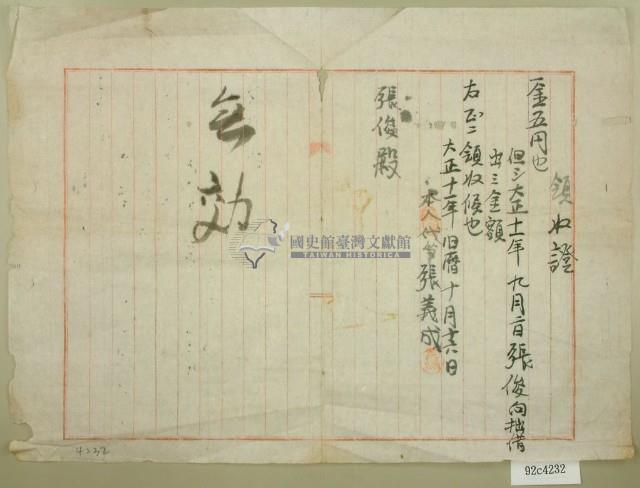 領収證
一金五円也
但シ大正十一年九月二日張俊向拙借
出三金額
右正二領収候也
大正十一年旧暦十月六日
本人代筆張義成
張俊殿
無効
國史館臺灣文獻館
TAIWAN HISTORICA
4232
92c4232